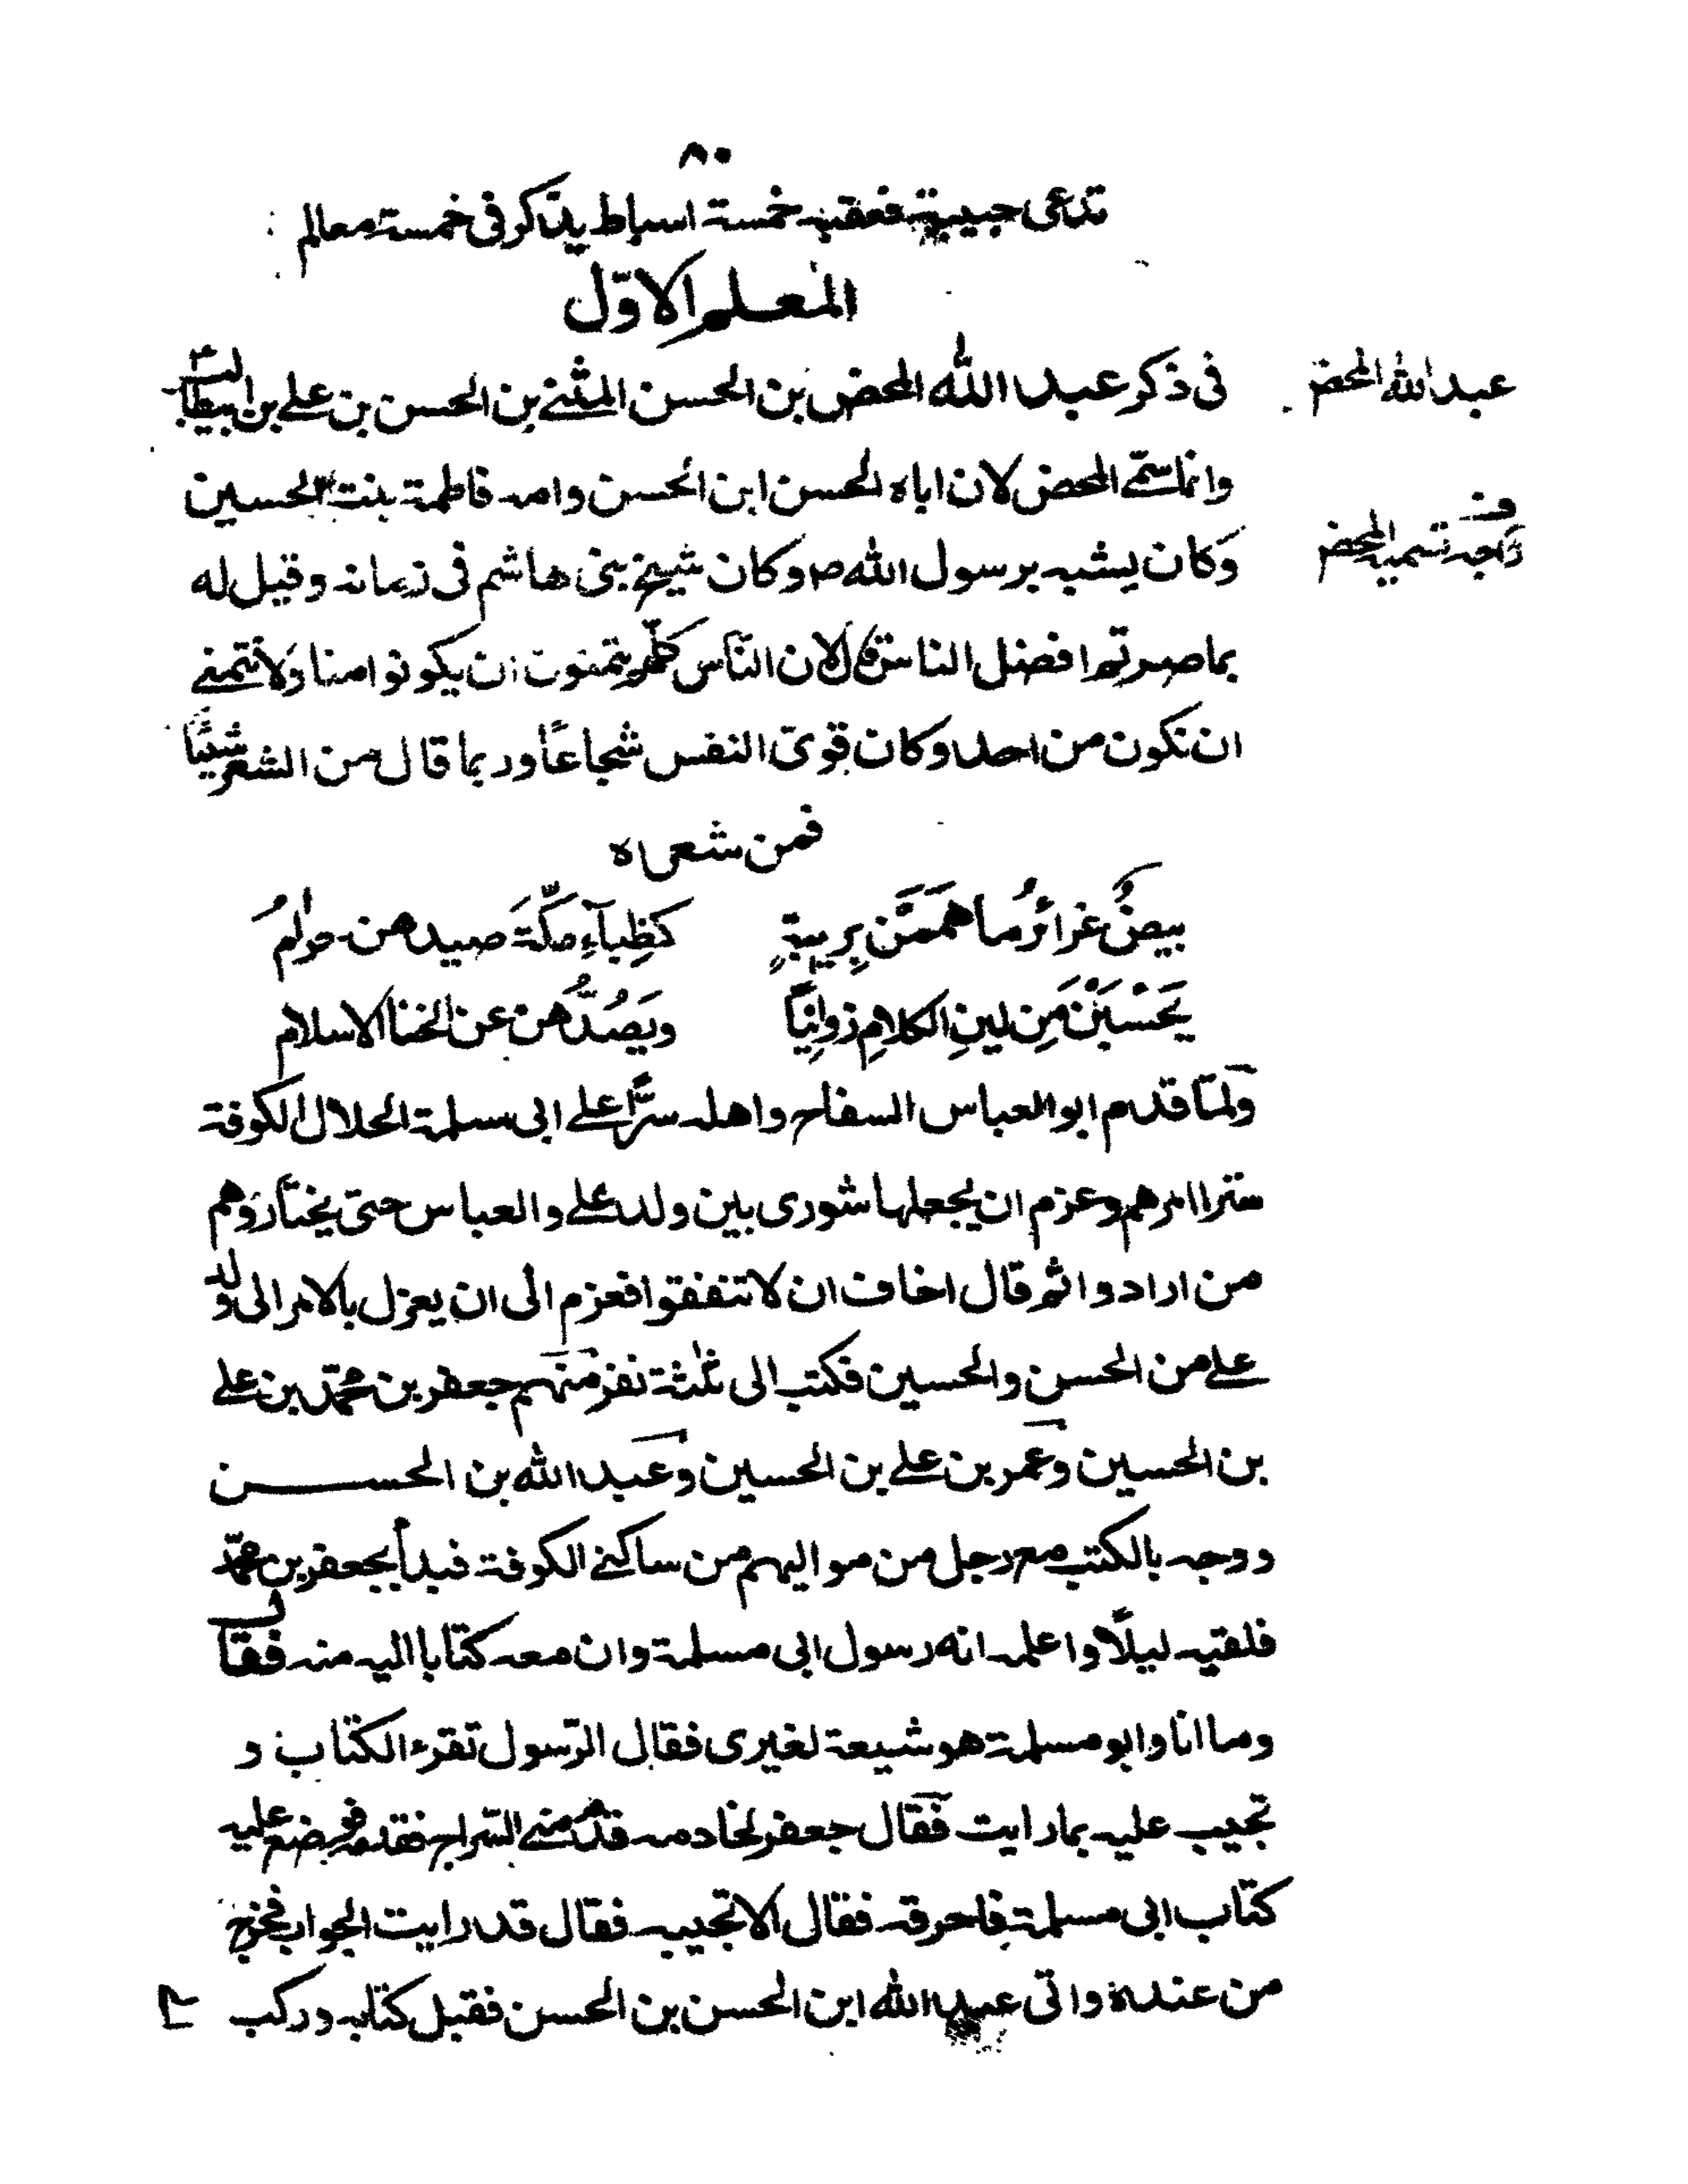 ٨٠
تدعى حبيبة فعقبه خمسة اسباط يذكر فى خمسة معالم
المعلم الاوّل
فى ذكر عبد الله المحض بن الحسن المثنى بن الحسن بن على بن ابيطالب
عبد الله المحض
وانما سمّى المحض لان اباه الحسن ابن الحسن وامه فاطمة بنت الحسين
وجه تسميه المحض
وكان يشبه برسول الله ص وكان شيخ بنى هاشم فى زمانه وقيل له
بما صرتم افضل الناس قال لان النّاس كلّهم يتمنون ان يكونوا منا ولا نتمنى
ان نكون من احد وكان قوىّ النفس شجاعًا وربما قال من الشعر شيئًا
فمن شعره
بيضٌ غرائرُ ما هَمَمَّن بِرِيبةٍ كَظِباَءِ مكّةَ صيدهن حرامُ
يَحْسَبْنَ مِن لينِ الكلامِ زوانِيًا ويَصُدُّهن عن الخنا الاسلام
ولمّا قدم ابو العباس السفاح واهله سرًّا على ابى سلمة الخلال الكوفة
ستر امرهم وعزم ان يجعلها شورى بين ولد على والعباس حتى يختاروهم
من ارادوا ثم قال اخاف ان لا تتفقوا فعزم الى ان يعزل بالامر الى ولد
على من الحسن والحسين فكتب الى ثلثة نفر منهم جعفر بن محمّد بن على
بن الحسين وعمر بن على بن الحسين وعبد الله بن الحسن
ووجه بالكتب مع رجل من مواليهم من ساكنى الكوفة فبدأ بجعفر بن محمّد
فلقيه ليلًا واعلمه انه رسول ابى مسلمة وان معه كتابا اليه منه فقال
وما انا وابو مسلمة هو شيعة لغيرى فقال الرّسول تقرء الكتاب و
تجيب عليه بما رايت فقال جعفر لخادمه قدم منى السّراج فقدمه فوضع عليه
كتاب ابى مسلمة فاحرقه فقال الا تجيبه فقال قد رايت الجواب فخرج
من عنده واتى عبد الله ابن الحسن بن الحسن فقبل كتابه وركب